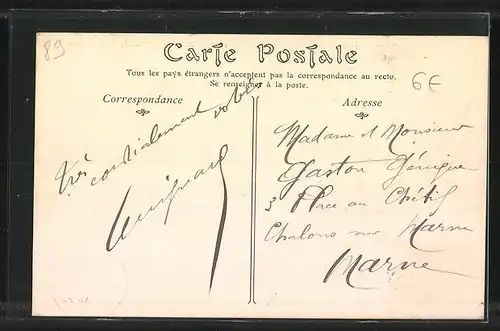 89
Carte Postale
Tous les pays étrangers n'acceptent pas la correspondance au recto.
Se renseigner à la poste.
6E
Correspondance
Très cordialement votre
Adresse
Madame et Monsieur
Gaston
3 Place au Chétif
Chalons sur Marne
Marne